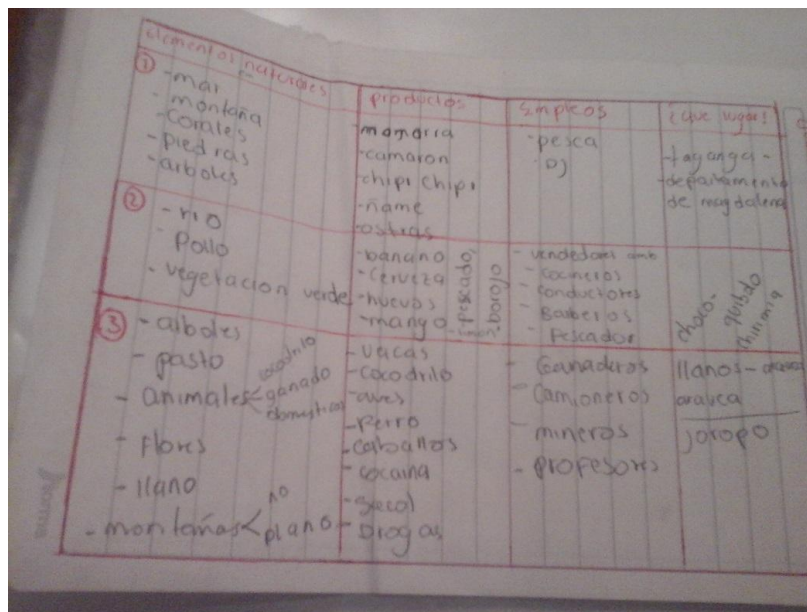 elementos naturales
productos
Empleos
¿que lugar?
①
-mar
-montaña
-corales
-piedras
-arboles
-mojarra
-camaron
-chipi chipi
-ñame
-ostras
-pesca
-DJ
-taganga-
-departamento
de magdalena
②
-rio
-Pollo
-vegetacion verde
-banano
-cerveza
-huevos
-mango
-pescado,
-limon
borojo
-vendedores amb
-cocineros
-conductores
-Barberos
-Pescador
choco-
quibdo
chirimia
③
-arboles
-pasto
-animales<
cocodrilo
ganado
domesticos
-flores
-llano
-montañas<
no
plano
-vacas
-cocodrilo
-aves
-perro
-caballos
-cocaina
-Drogas
-Ganaderos
-Camioneros
-mineros
-profesores
llanos-
arauca
joropo
norma